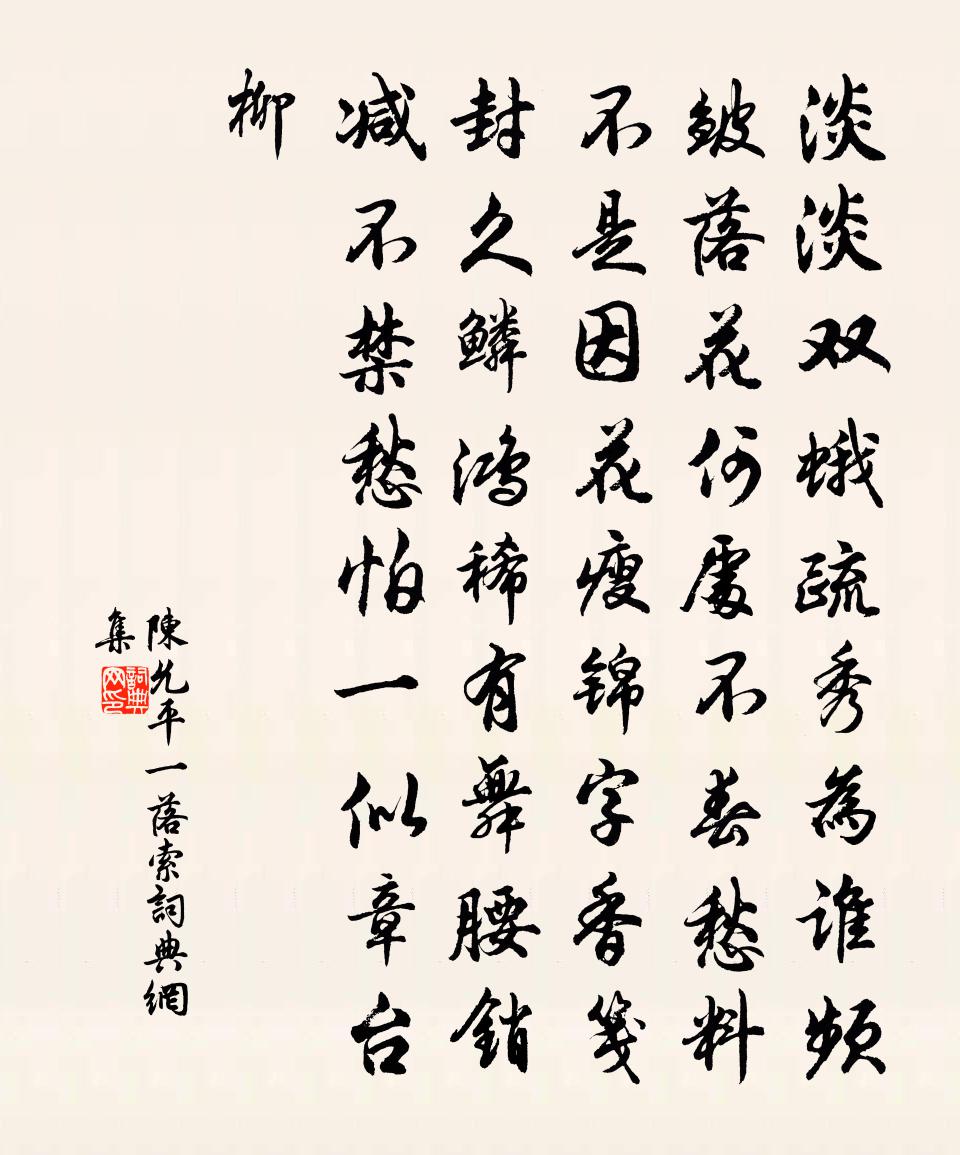 淡淡双蛾疏秀為谁频
皴落花何處不春愁料
不是因花瘦锦字香箋
封久鳞鸿稀有舞腰销
减不禁愁怕一似章台
柳
陳允平一落索詞典網
集
詞典網印